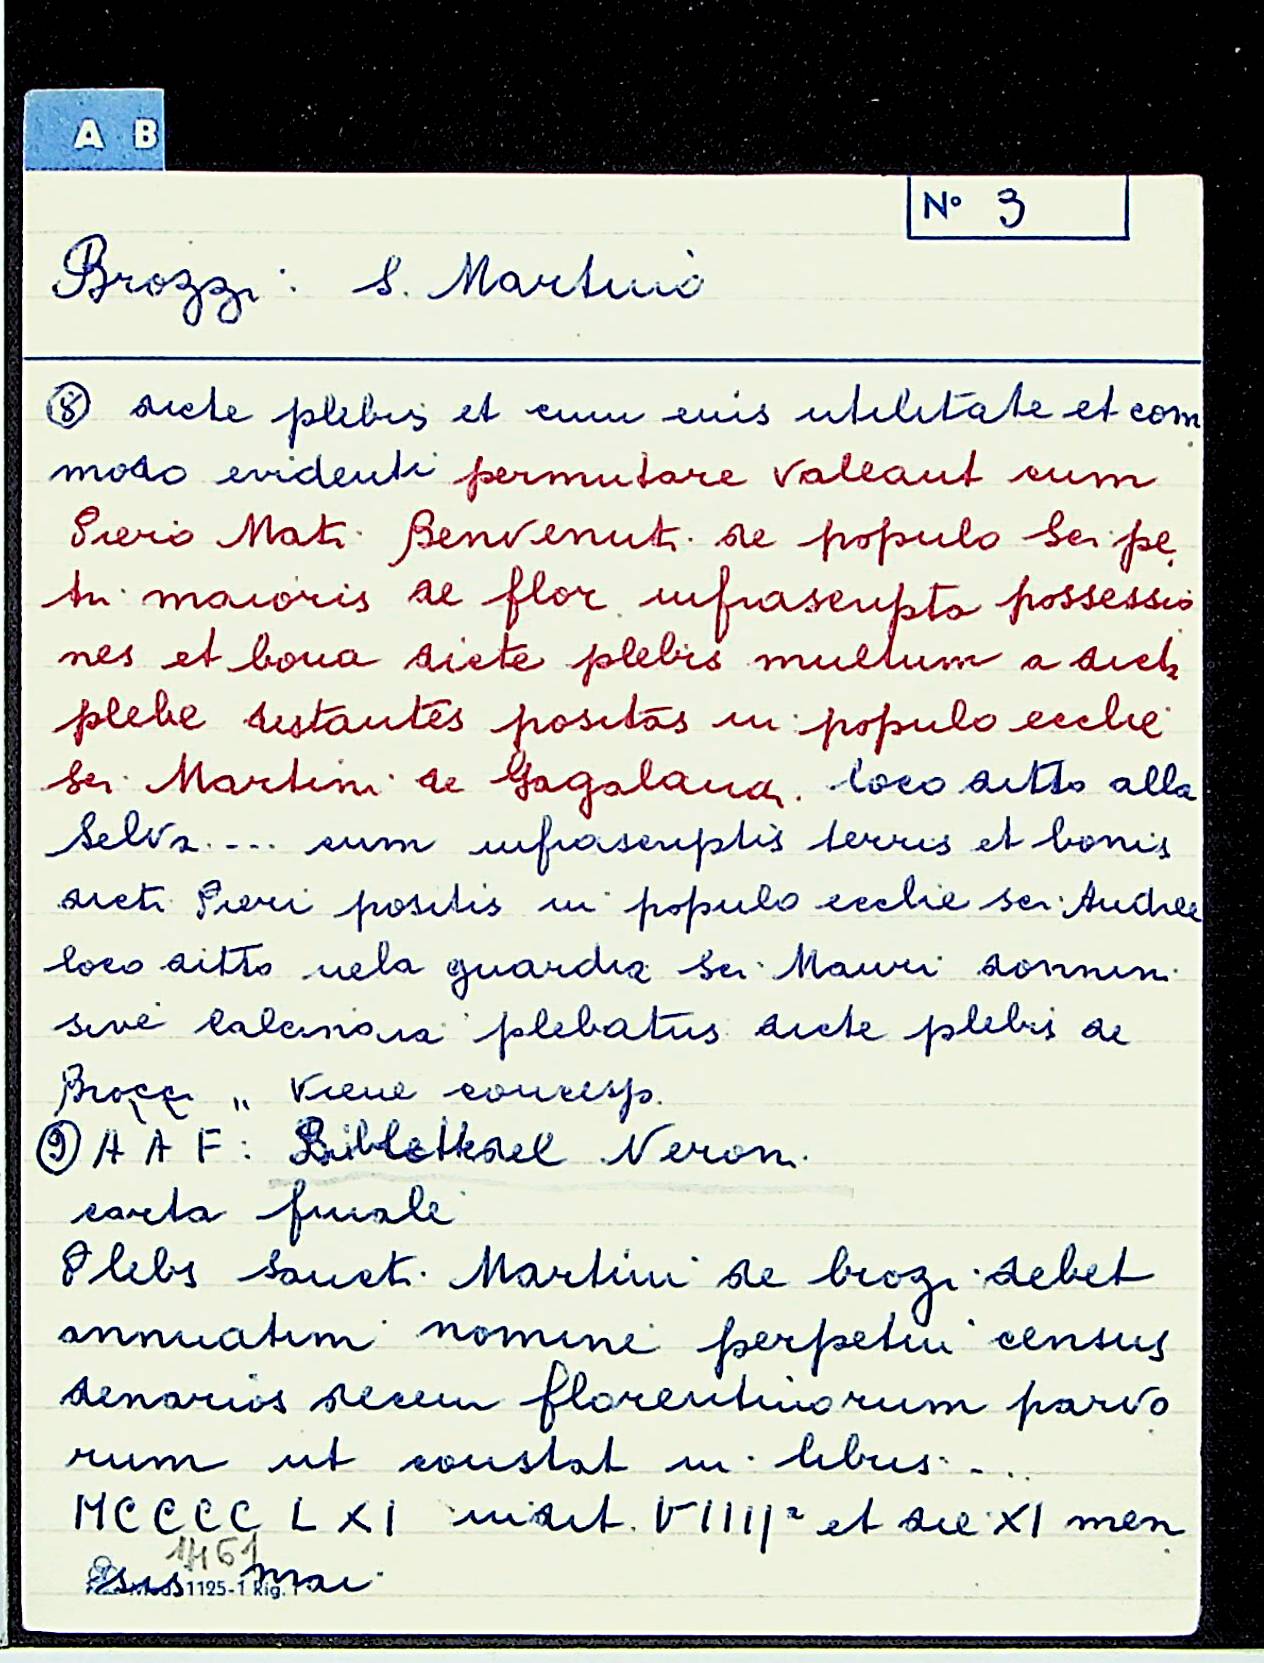 A B
N° 3
Brozzi: S. Martino
⑧ dicte plebis et cum eius utilitate et com
modo evidenti permutare valeant cum
Piero Mati Benvenuti de populo sci pe
tri maioris de flor infrascripta possessio
nes et bona dicte plebis multum a dicta
plebe distantes positas in populo ecclie
sci Martini de Gagalandi. loco ditto alla
Selva .... cum infrascriptis terris et bonis
dicti Pieri positis in populo ecclie sci Andree
loco ditto nela guardia sci Mauri
sive calcinaia plebatus dicte plebis de
Brocci " viene concesso.
⑨ A A F: Neroni
carta finale
Plebs sancti Martini de brozi debet
annuatim nomine perpetui census
denarios decem florentinorum parvo
rum ut constat in libris ...
MCCCC L XI indit. VIIIIª et die XI men
1461
sis mai
1125-1 Rig.